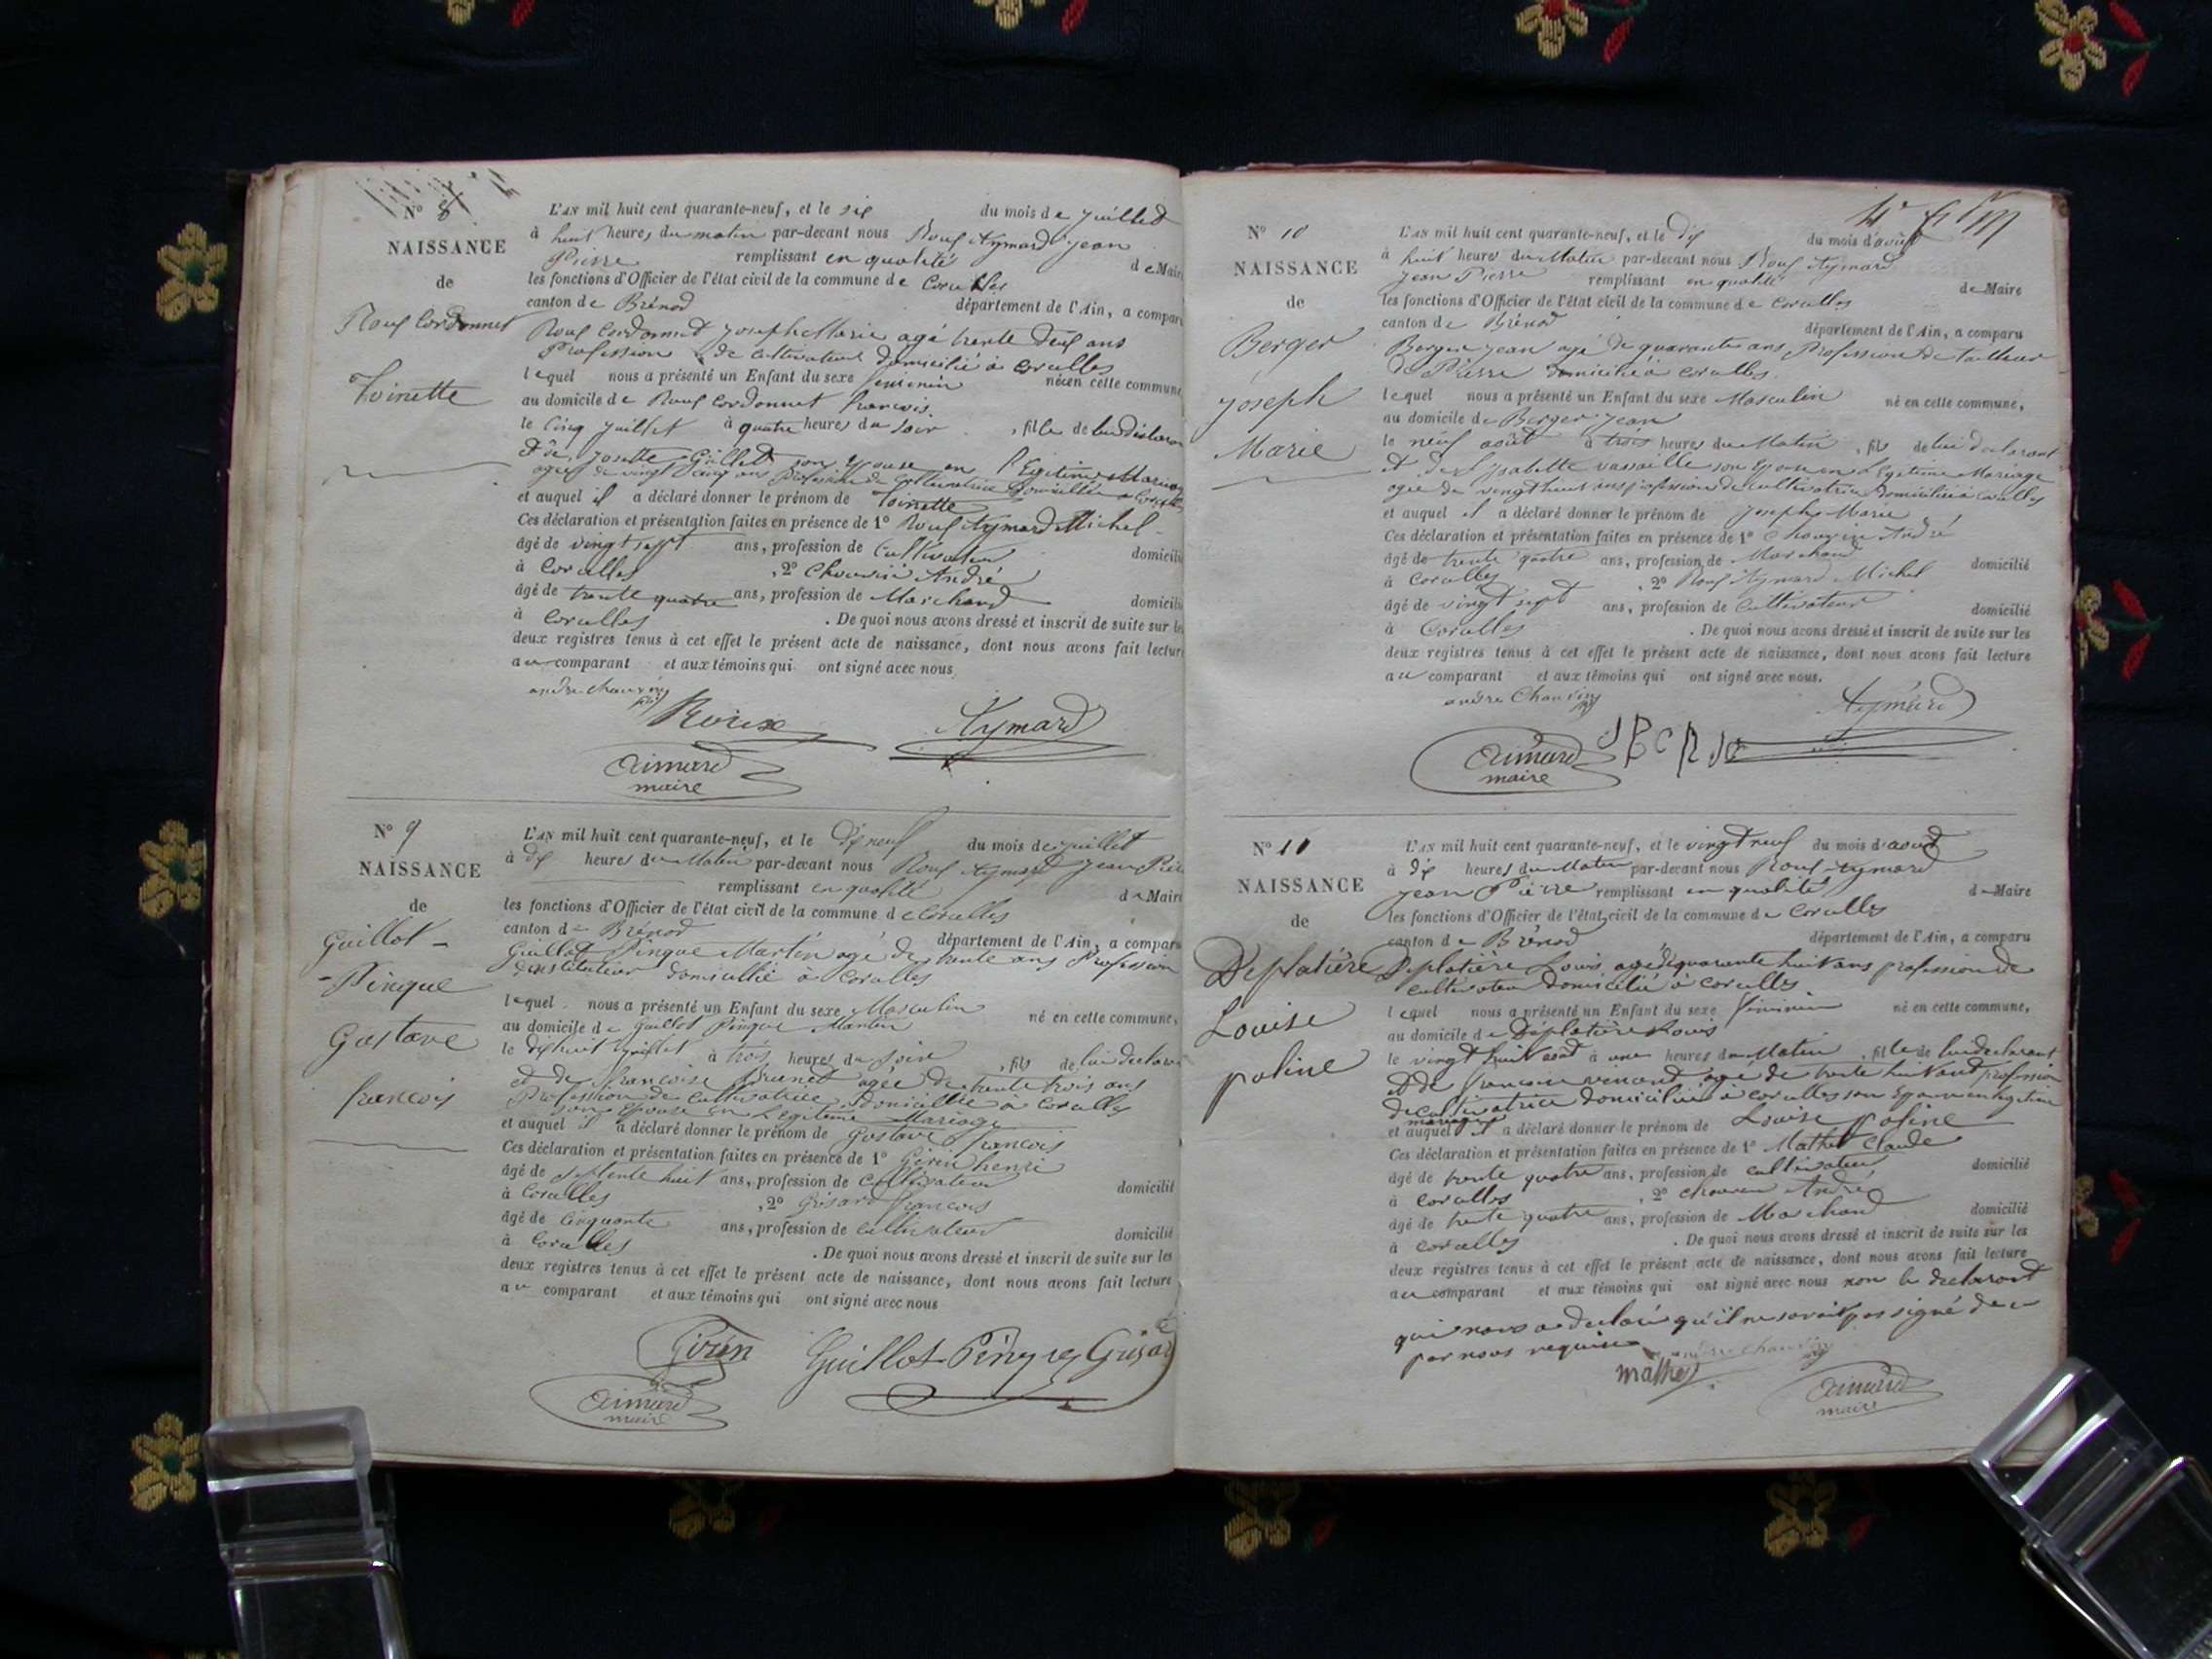 N° 8
NAISSANCE
de
Roux Cordonnet
Toinette
L'AN mil huit cent quarante-neuf, et le six du mois de juillet
à huit heures du matin par-devant nous Roux Aymard jean
Pierre remplissant en qualité de Maire
les fonctions d'Officier de l'état civil de la commune de Corcelles
canton de Brénod département de l'Ain, a comparu
Roux Cordonnet joseph Marie agé trente deux ans
Profession de cultivateur domicilié à corcelles
lequel nous a présenté un Enfant du sexe feminin née en cette commune
au domicile de Roux Cordonnet francois.
le cinq juillet à quatre heures du soir , fille de lui déclarant
Et de josette Guillet son épouse en Légitime Mariage
agée de vingt cinq ans Profession de cultivatrice Domiciliée à Corcelles
et auquel il a déclaré donner le prénom de Toinette
Ces déclaration et présentation faites en présence de 1° Roux Aymard Michel
âgé de vingt sept ans, profession de Cultivateur domicilié
à Corcelles , 2° Chauvin André
âgé de trente quatre ans, profession de Marchand domicilié
à Corcelles . De quoi nous avons dressé et inscrit de suite sur les
deux registres tenus à cet effet le présent acte de naissance, dont nous avons fait lecture
au comparant et aux témoins qui ont signé avec nous
andre chauvin
Roux Aymard
Aimard
maire
N° 9
NAISSANCE
de
Guillot-
-Pinque
Gustave
francois
L'AN mil huit cent quarante-neuf, et le dix neuf du mois de juillet
à dix heures du Matin par-devant nous Roux Aymard Jean Pierre
remplissant en qualité de Maire
les fonctions d'Officier de l'état civil de la commune de Corcelles
canton de Brénod département de l'Ain, a comparu
Guillot Pinque Martin agé de trente ans Profession
d'instituteur domicillié à Corcelles
lequel nous a présenté un Enfant du sexe Masculin né en cette commune,
au domicile de Guillot Pinque Martin
le dix huit juillet à trois heures du soire , fils de lui declarant
et de francoise Brunet agée de trente trois ans
Profession de cultivatrice domicilliée à Corcelles
son épouse en Légitime Mariage
et auquel il a déclaré donner le prénom de Gustave francois
Ces déclaration et présentation faites en présence de 1° Girin henri
âgé de septente huit ans, profession de Cultivateur domicilié
à Corcelles , 2° Grisard francois
âgé de Cinquante ans, profession de cultivateur domicilié
à Corcelles . De quoi nous avons dressé et inscrit de suite sur les
deux registres tenus à cet effet le présent acte de naissance, dont nous avons fait lecture
au comparant et aux témoins qui ont signé avec nous
Girin Guillot Grisard
Aimard
maire
N° 10
NAISSANCE
de
Berger
joseph
Marie
L'AN mil huit cent quarante-neuf, et le dix du mois d'août
à huit heures du Matin par-devant nous Roux Aymard
jean Pierre remplissant en qualité de Maire
les fonctions d'Officier de l'état civil de la commune de Corcelles
canton de Brénod département de l'Ain, a comparu
Berger jean agé de quarante ans Profession de tailleur
de Pierre domicilié à corcelles.
lequel nous a présenté un Enfant du sexe Masculin né en cette commune,
au domicile de Berger jean
le neuf août à trois heures du Matin , fils de lui declarant
et de vassaille son Epouse en Légitime Mariage
agée de vingt huit ans profession de cultivatrice domiciliée à corcelles
et auquel il a déclaré donner le prénom de joseph Marie
Ces déclaration et présentation faites en présence de 1° Chauvin André
âgé de trente quatre ans, profession de Marchand domicilié
à Corcelles , 2° Roux Aymard Michel
âgé de vingt sept ans, profession de cultivateur domicilié
à Corcelles . De quoi nous avons dressé et inscrit de suite sur les
deux registres tenus à cet effet le présent acte de naissance, dont nous avons fait lecture
au comparant et aux témoins qui ont signé avec nous.
andre Chauvin
Aymard
Aimard
maire
N° 11
NAISSANCE
de
Deplatière
Louise
poline
L'AN mil huit cent quarante-neuf, et le vingt neuf du mois d'aout
à dix heures du Matin par-devant nous Roux Aymard
jean Pierre remplissant en qualité de Maire
les fonctions d'Officier de l'état civil de la commune de Corcelles
canton de Brénod département de l'Ain, a comparu
Deplatière Louis agé de quarante huit ans profession de
cultivateur domicilié à corcelles.
lequel nous a présenté un Enfant du sexe féminin né en cette commune,
au domicile de Deplatière Louis
le vingt huit août à une heures du Matin , fille de lui declarant
Et de francoise agé de trente huit ans profession
de cultivatrice domiciliée à corcelles son Epouse en legitime
mariage
et auquel il a déclaré donner le prénom de Louise poline
Ces déclaration et présentation faites en présence de 1° Mathet Claude
âgé de trente quatre ans, profession de cultivateur domicilié
à corcelles , 2° chauvin André
âgé de trente quatre ans, profession de Marchand domicilié
à corcelles . De quoi nous avons dressé et inscrit de suite sur les
deux registres tenus à cet effet le présent acte de naissance, dont nous avons fait lecture
au comparant et aux témoins qui ont signé avec nous non le declarant
qui nous a declaré qu'il ne savait pas signé de ce
par nous requis
mathet andre chauvin
Aimard
maire